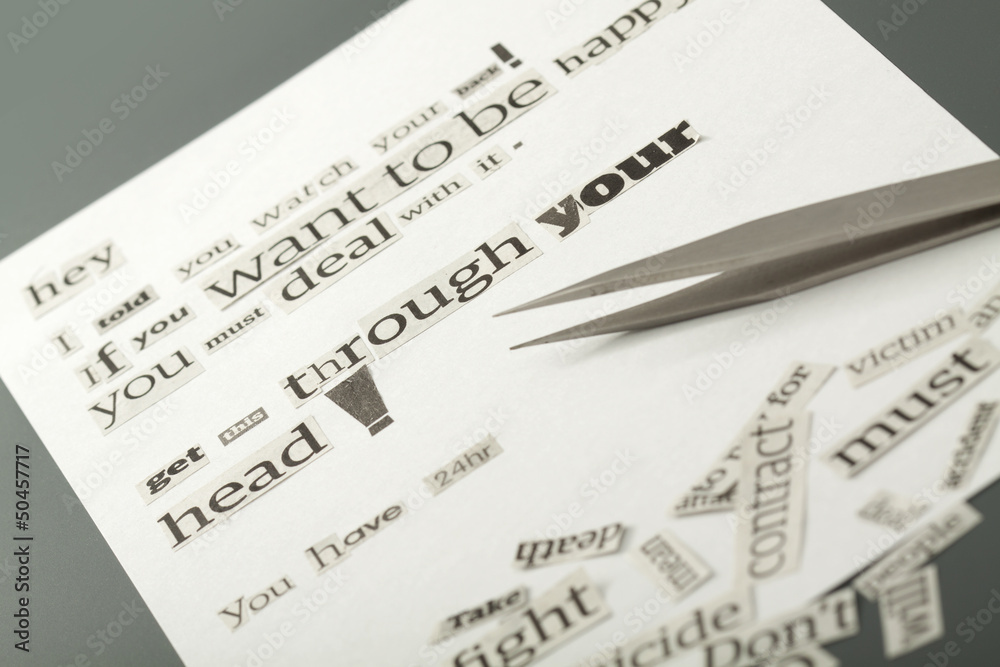 hey
I told you watch your back!
If you want to be happy
you must deal with it -
get this through your
head!
you have 24hr
for
contract'
victim
must
accident
death
mean
people
Take
fight
Don't
Adobe Stock | #50457717